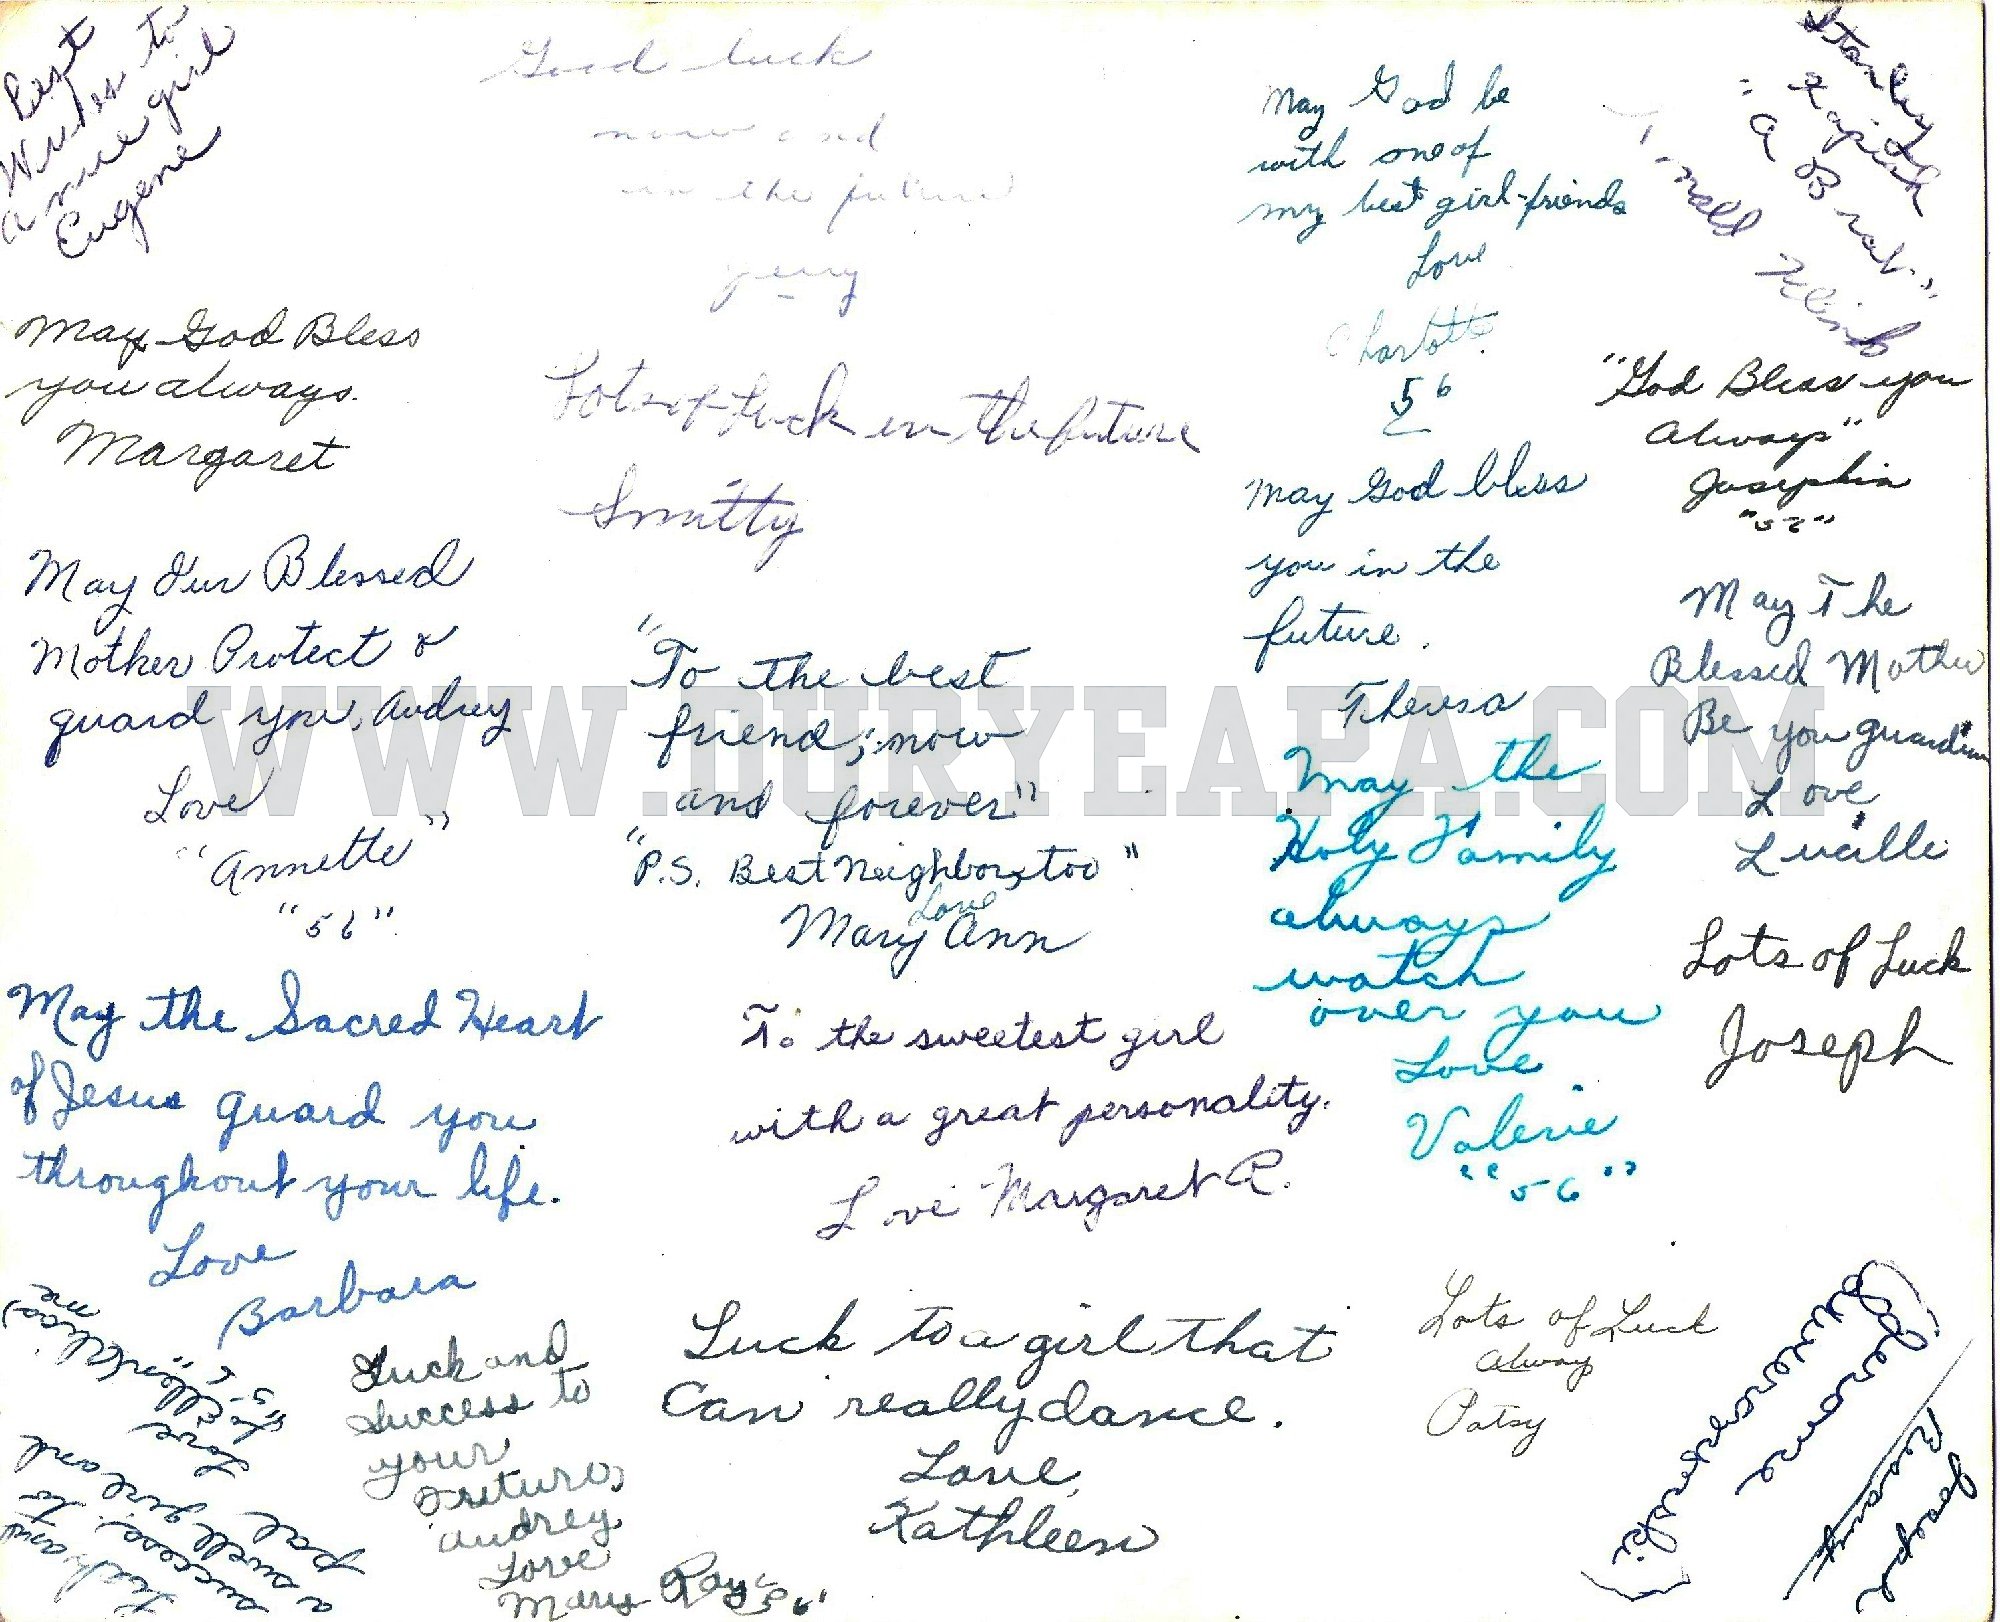 Best
Wishes to
a nice girl
Eugene
Good luck
now and
in the future
Jerry
May God be
with one of
my best girl-friends
Love
Charlotte
56
Stanley
"A Brat"
May God Bless
you always.
Margaret
Lots of Luck in the future
Smitty
"God Bless you
Always"
Josephin
"56"
May God bless
you in the
future.
Theresa
May Our Blessed
Mother Protect &
guard you, Audrey
Love
"Annette"
"56"
"To the best
friend, now
and forever"
"P.S. Best Neighbor, too"
Love
Mary Ann
May The
Blessed Mother
Be you guardian
Love,
Lucille
WWW.DURYEAPA.COM
May the
Holy Family
always
watch
over you
Love
Valerie
"56"
Lots of Luck
Joseph
May the Sacred Heart
of Jesus guard you
throughout your life.
Love
Barbara
To the sweetest girl
with a great personality.
Love Margaret R.
Luck and
success to
a swell girl and
pal
Love
Ellen (Alias)
me
"56"
Luck and
Success to
your
Future,
Audrey
Love
Mary Ray "56"
Luck to a girl that
Can really dance.
Love,
Kathleen
Lots of Luck
Always
Patsy
Jerome
Joseph